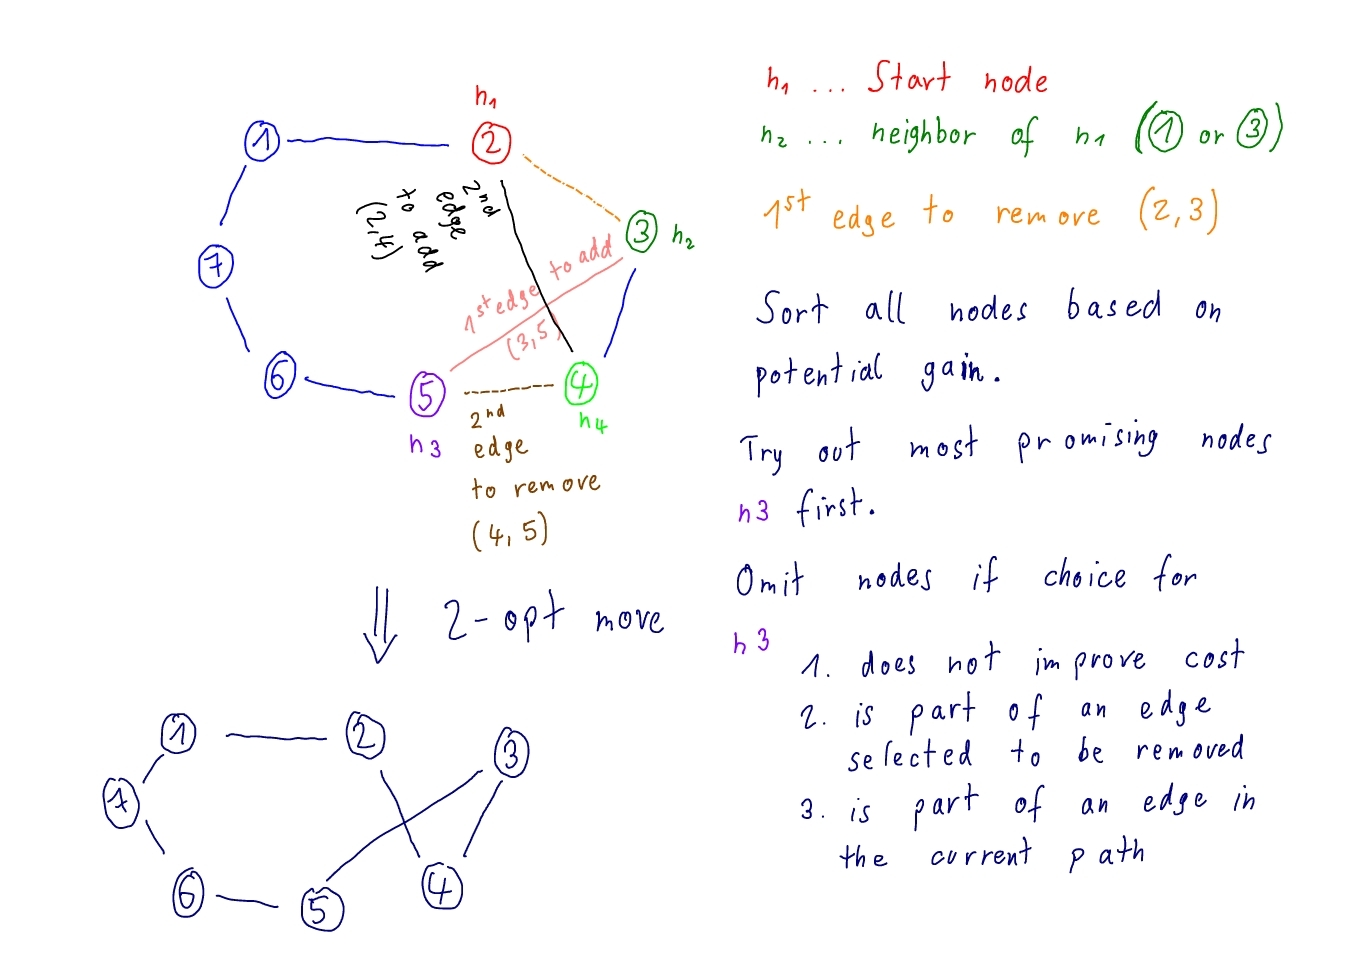 n1
1
2
2nd
edge
to add
(2,4)
3
n2
7
1st edge to add
(3,5)
6
5
4
n3
n4
2nd
edge
to remove
(4,5)
2-opt move
1
2
3
7
6
5
4
n1 ... Start node
n2 ... neighbor of n1 (1 or 3)
1st edge to remove (2,3)
Sort all nodes based on
potential gain.
Try out most promising nodes
n3 first.
Omit nodes if choice for
n3
1. does not improve cost
2. is part of an edge
selected to be removed
3. is part of an edge in
the current path